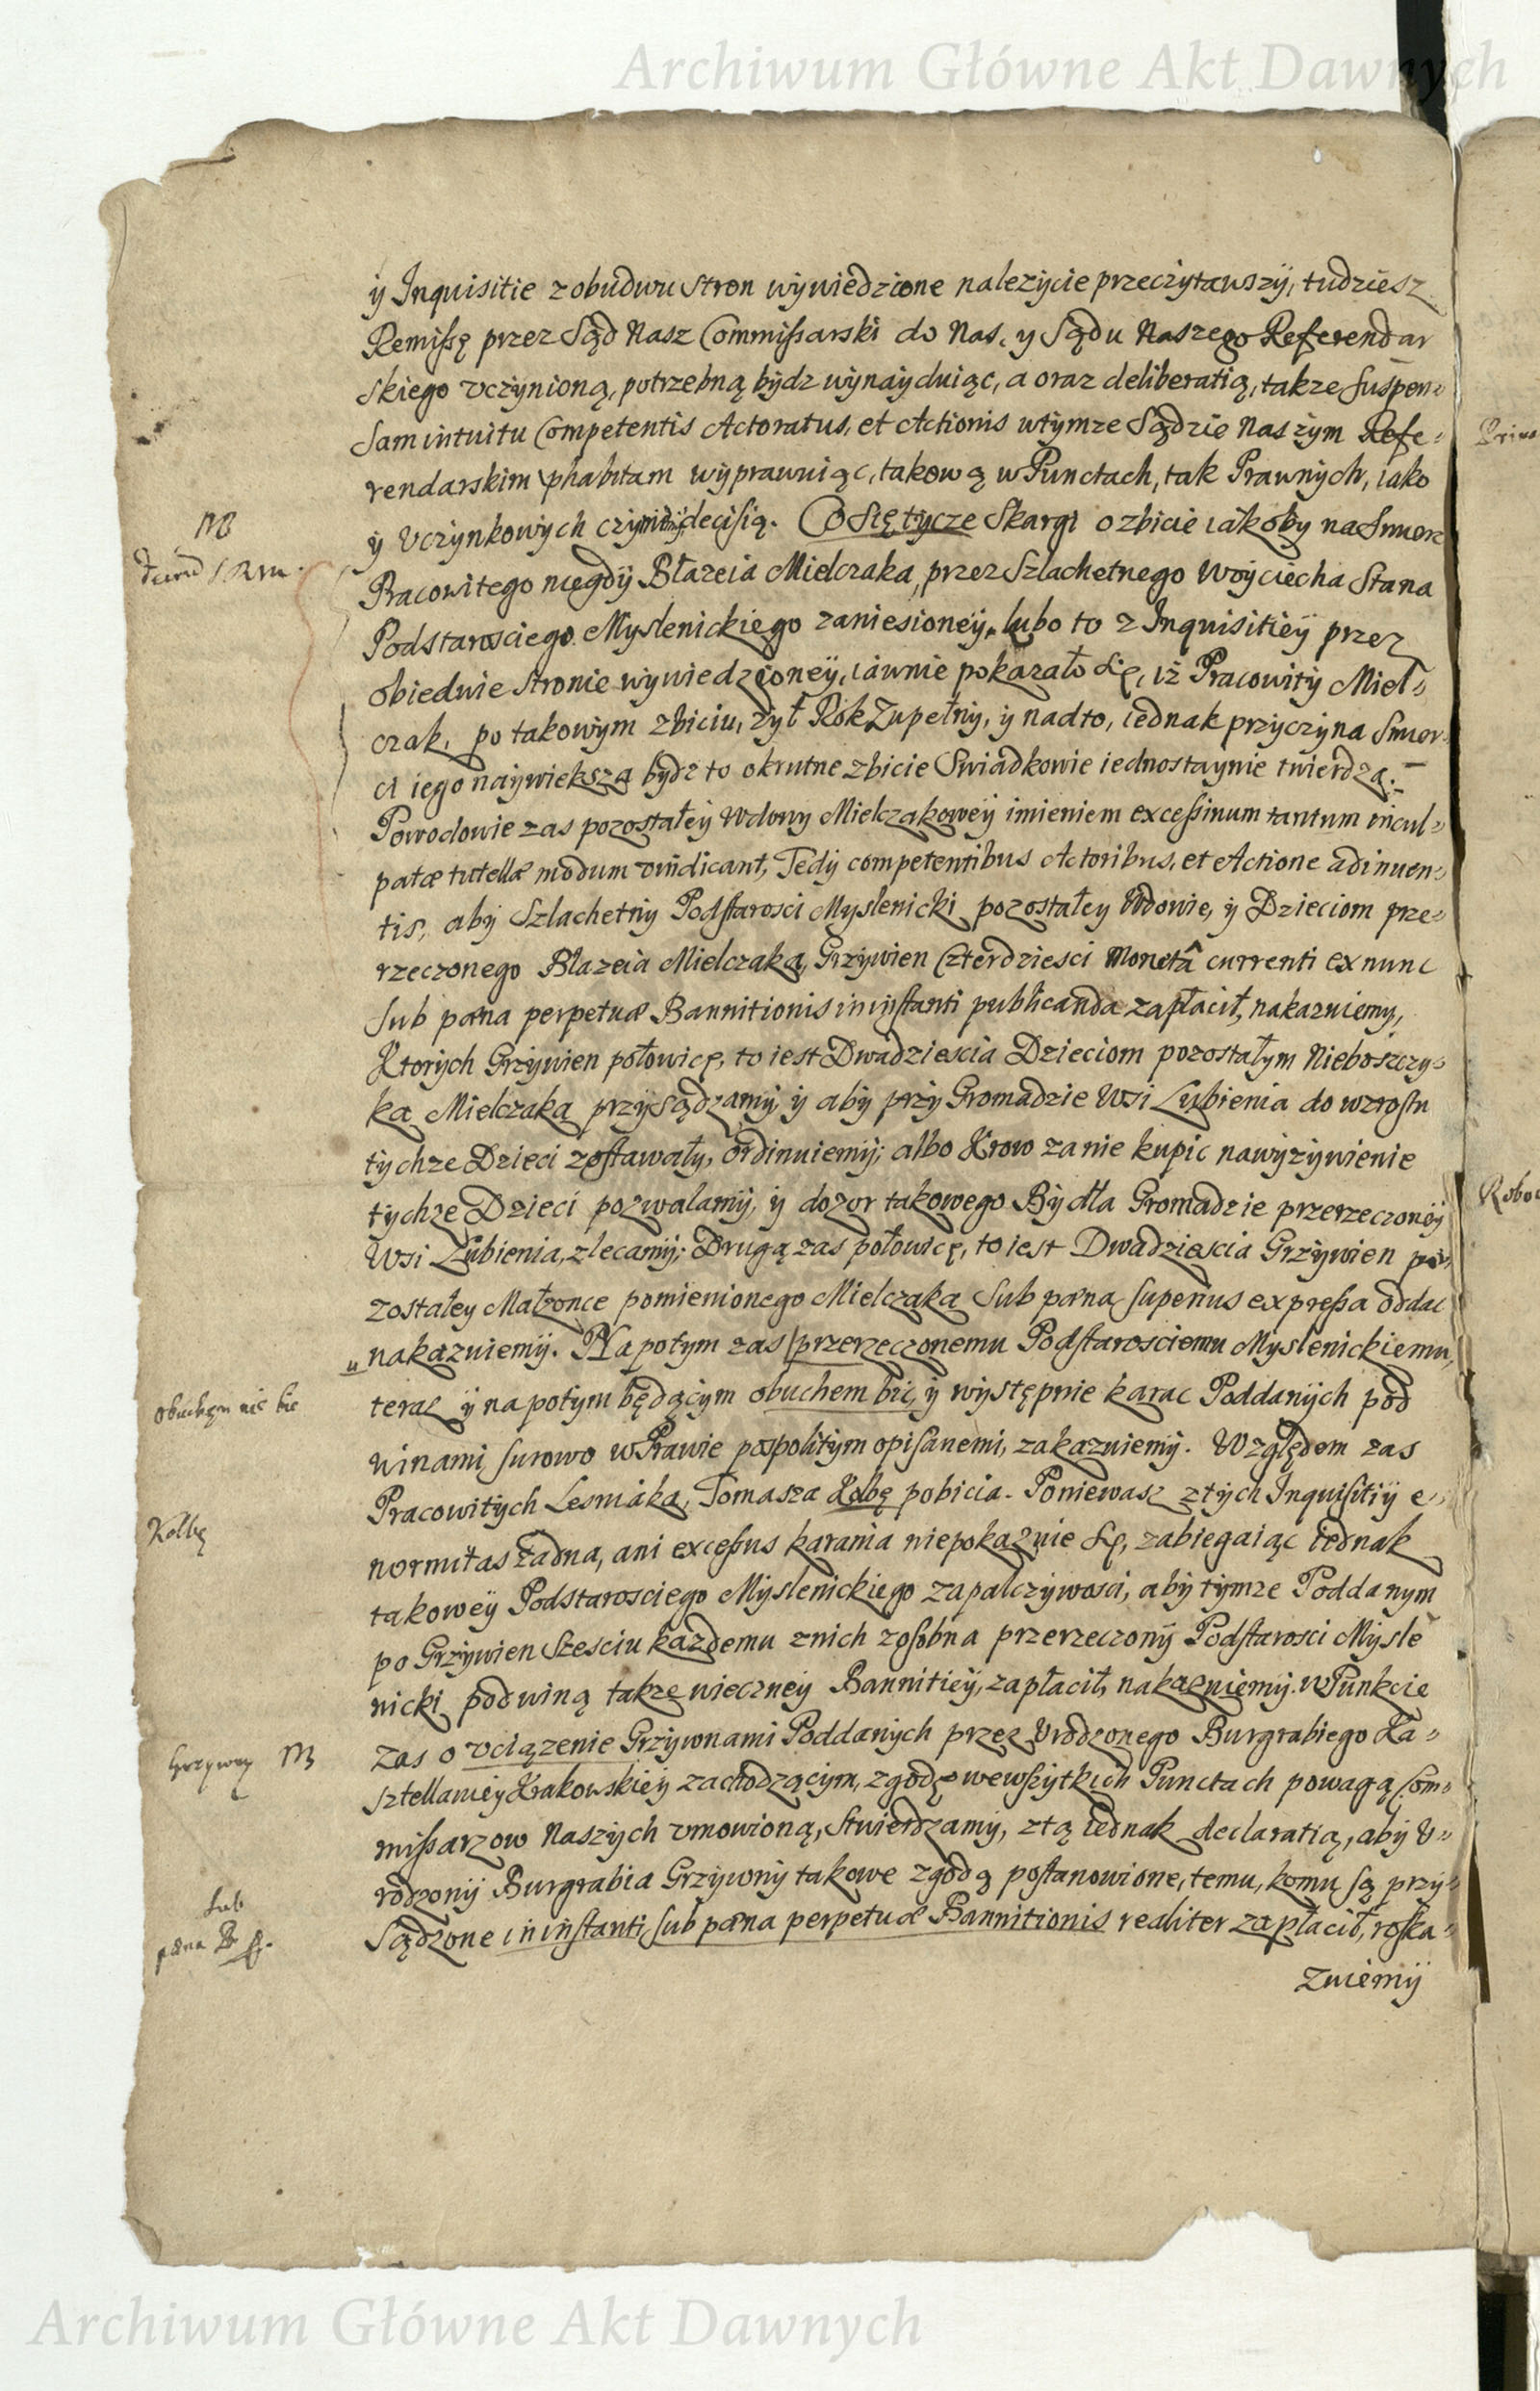 Archiwum Główne Akt Dawnych
ÿ Inquisitie z obudwu stron wywiedzione nalezycie przeczytawszÿ, tudziesz
Remissę przez Sąd Nasz Commissarski do Nas, y Sądu Naszego Referendar
skiego vczÿnioną, potrzebną bÿdz wÿnayduiąc, a oraz deliberatią, takze suspen=
sam intuitu Competentis Actoratus, et Actionis w tÿmze Sądzie Naszÿm Refe=
rendarskim phabitam wÿprawuiąc, takową w Punctach, tak Prawnÿch, iako
ÿ Vczÿnkowÿch czÿniemÿ decisią. Co się tÿcze Skargi o zbicie iakobÿ na Smerc
Pracowitego niegdÿ Błazeia Mielczaka, przez Szlachetnego Woÿciecha Stana
Podstarosciego Myslenickiego zaniesioneÿ, lubo to z Inquisitieÿ przez
obiedwie stronie wÿwiedzioneÿ, iawnie pokazało się, iż Pracowitÿ Miel=
czak, po takowÿm zbiciu, zÿł Rok Zupełnÿ, ÿ nadto, iednak przÿczÿna Smer=
ci iego naÿwieksza bÿdz to okrutne zbicie Swiadkowie iednostaÿnie twierdzą.
Powodowie zas pozostałeÿ Wdowÿ Mielczakoweÿ imieniem excessiuum tantum incul=
patæ tutellæ modum vindicant, Tedÿ competentibus Actoribus, et Actione adinuen=
tis, abÿ Szlachetnÿ Podstarosci Myslenicki pozostałey Wdowie, ÿ Dzieciom prze=
rzeczonego Błazeia Mielczaka, Grzÿwien Czterdziesci Monetâ currenti ex nunc
sub pœna perpetuæ Bannitionis in instanti publicanda zapłacił, nakazuiemy,
Ktorÿch Grzÿwien połowicę, to iest Dwadziescia Dzieciom pozostałÿm Nieboszczÿ=
ka Mielczaka przÿsądzamÿ, ÿ abÿ przÿ Gromadzie Wsi Lubienia do wzrostu
tÿchze Dzieci zostawałÿ, ordinuiemÿ; albo Krow za nie kupic na wÿzÿwienie
tÿchze Dzieci pozwalamÿ, ÿ dozor takowego Bÿdła Gromadzie przerzeczoneÿ
Wsi Lubienia, zlecamÿ; Drugą zas połowicę, to iest Dwadziescia Grzÿwien po=
zostałey Małzonce pomienionego Mielczaka sub pœna superius expressa oddac
nakazuiemÿ. Na potym zas przerzeczonemu Podstarosciemu Myslenickiemu,
teraz ÿ na potÿm będącÿm obuchem bic, ÿ wÿstępnie karac Poddanÿch pod
winami surowo w Prawie pospolitÿm opisanemi, zakazuiemÿ. Względem zas
Pracowitÿch Lesniaka, Tomasza Kolbę pobicia. Poniewasz z tÿch Inquisitiÿ e=
normitas żadna, ani excessus karania niepokazuie się, zabiegaiąc iednak
takoweÿ Podstarosciego Mÿslenickiego zapalczÿwosci, abÿ tÿmze Poddanym
po Grzÿwien Szesciu każdemu z nich zosobna przerzeczonÿ Podstarosci Mÿsle
nicki pod winą takze wieczneÿ Bannitieÿ, zapłacił, nakazuiemÿ. w Punkcie
zas o vciązenie Grzÿwnami Poddanÿch przez Vrodzonego Burgrabiego Ka=
sztellanieÿ Krakowskieÿ zachodzącÿm, zgodę we wszÿtkich Punctach powagą Com=
missarzow Naszÿch vmowioną, stwierdzamy, z tą iednak declaratią, abÿ V=
rodzonÿ Burgrabia Grzÿwnÿ takowe zgodą postanowione, temu, komu są przÿ=
sądzone in instanti sub pœna perpetuæ Bannitionis realiter zapłacił, roska=
zuiemÿ
NB
obuchem nie bic
Kolbę
Grzywny NB
sub
pœna
Archiwum Główne Akt Dawnych